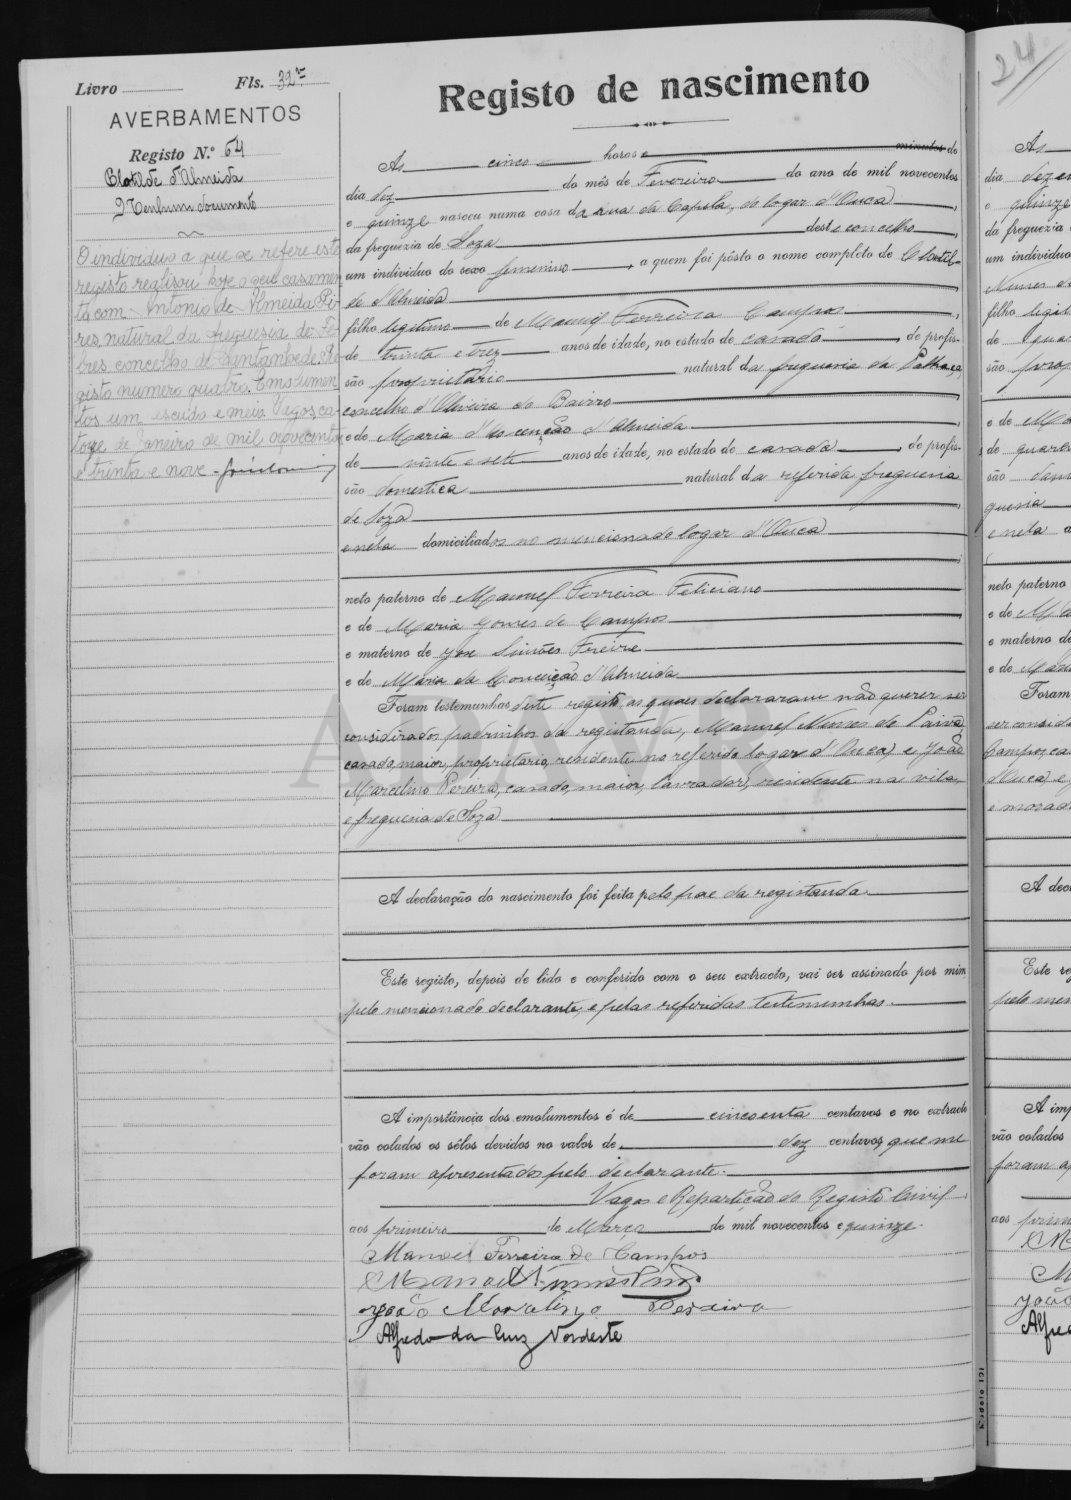 Livro Fls. 32v
AVERBAMENTOS
Registo N.º 64
Clotilde d'Almeida
Nenhum documento
O individuo a que se refere este
registo realisou hoje o seu casamen
to com Antonio de Almeida Pi-
res, natural da freguesia de Fe-
bres concelho de Cantanhede. Re
gisto numero quatro. Emolumen
tos um escudo e meio. Vagos, ca-
torze de Janeiro de mil novecentos
e trinta e nove
Registo de nascimento
As cinco horas e minutos do
dia dez do mês de Fevereiro do ano de mil novecentos
e quinze nasceu numa casa da rua da Capela, do logar d'Ouca
da freguezia de Soza deste concelho,
um individuo do sexo femenino, a quem foi pôsto o nome completo de Clotil-
de d'Almeida
filho legitimo de Manuel Ferreira Campos
de trinta e trez anos de idade, no estado de casado, de profis-
são proprietário natural da freguesia da Palhaça,
concelho d'Oliveira do Bairro
e de Maria d'Ascenção d'Almeida
de vinte e sete anos de idade, no estado de casada, de profis-
são domestica natural da referida freguesia
de Soza
e neta domiciliados no mencionado logar d'Ouca
neto paterno de Manuel Ferreira Feliciano
e de Maria Gomes de Campos
e materno de José Simões Freire
e de Maria da Conceição d'Almeida
Foram testemunhas deste registo, as quaes declararam não querer ser
considerados padrinhos da registanda, Manuel Nunes de Paiva,
casado, maior, proprietario, residente no referido logar d'Ouca, e João
Marcelino Pereira, casado, maior, lavrador, residente na vila
e freguesia de Soza
A declaração do nascimento foi feita pelo pae da registanda.
Este registo, depois de lido e conferido com o seu extracto, vai ser assinado por mim
pelo mencionado declarante, e pelas referidas testemunhas.
A importância dos emolumentos é de cincoenta centavos e no extracto
vão colados os sêlos devidos no valor de dez centavos que me
foram apresentados pelo declarante.
Vagos e Repartição do Registo Civil
aos primeiro de Março de mil novecentos e quinze.
Manoel Ferreira De Campos
Manoel Nunes
João Marcelino Pereira
Alfredo da Cruz Nordeste
24
As
dia dezen
e quinze
da freguezia
um individuo
Nunes
filho legit
de
são prop
e de Ma
de quaren
são dom
guesia
e neta
neto paterno
e de Ma
e materno de
e de Mari
Foram
ser conside
Campos, ca
d'Ouca, e
e morad
A decl
Este re
pelo men
A imp
vão colados
foram ap
aos prime
M
João
Alfre